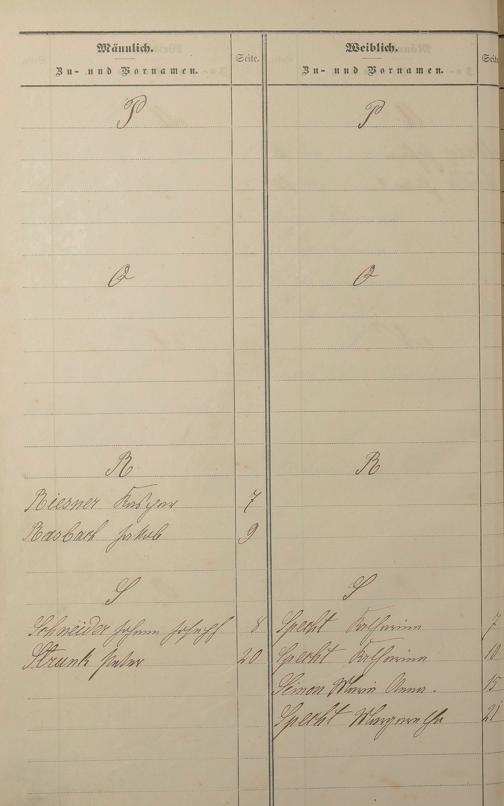 Männlich.
Zu- und Vornamen.
Seite.
P
Q
R
Riesner Kaspar 7
Rasbach Jakob 9
S
Schneider Johann Joseph 8
Strunk Peter 20
Weiblich.
Zu- und Vornamen.
Seite
P
Q
R
S
Specht Katharina 7
Specht Katharina 10
Simon Maria Anna. 15
Specht Margaretha 21